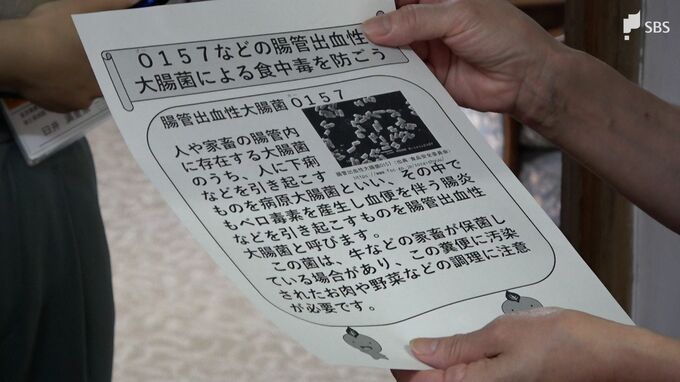 SBS
O157などの腸管出血性
大腸菌による食中毒を防ごう
腸管出血性大腸菌O157
人や家畜の腸管内
に存在する大腸菌
のうち、人に下痢
などを引き起こす
ものを病原大腸菌といい、その中で
もベロ毒素を産生し血便を伴う腸炎
などを引き起こすものを腸管出血性
大腸菌と呼びます。
この菌は、牛などの家畜が保菌し
ている場合があり、この糞便に汚染
されたお肉や野菜などの調理に注意
が必要です。